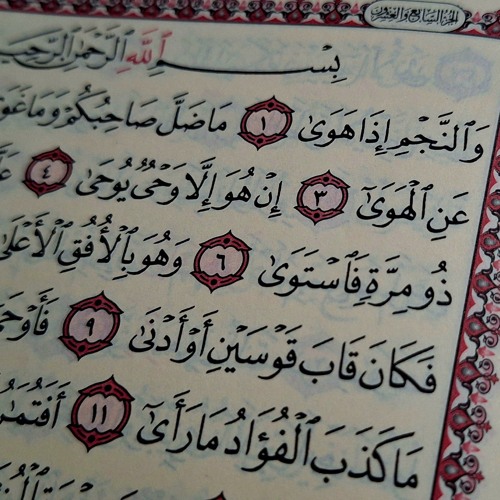 الجزء السابع والعشرون
بِسْمِ ٱللَّهِ ٱلرَّحْمَٰنِ ٱلرَّحِيمِ
وَٱلنَّجْمِ إِذَا هَوَىٰ ١ مَا ضَلَّ صَاحِبُكُمْ وَمَا غَوَىٰ
عَنِ ٱلْهَوَىٰٓ ٣ إِنْ هُوَ إِلَّا وَحْىٌ يُوحَىٰ ٤
ذُو مِرَّةٍ فَٱسْتَوَىٰ ٦ وَهُوَ بِٱلْأُفُقِ ٱلْأَعْلَىٰ
فَكَانَ قَابَ قَوْسَيْنِ أَوْ أَدْنَىٰ ٩ فَأَوْحَىٰ
مَا كَذَبَ ٱلْفُؤَادُ مَا رَأَىٰٓ ١١